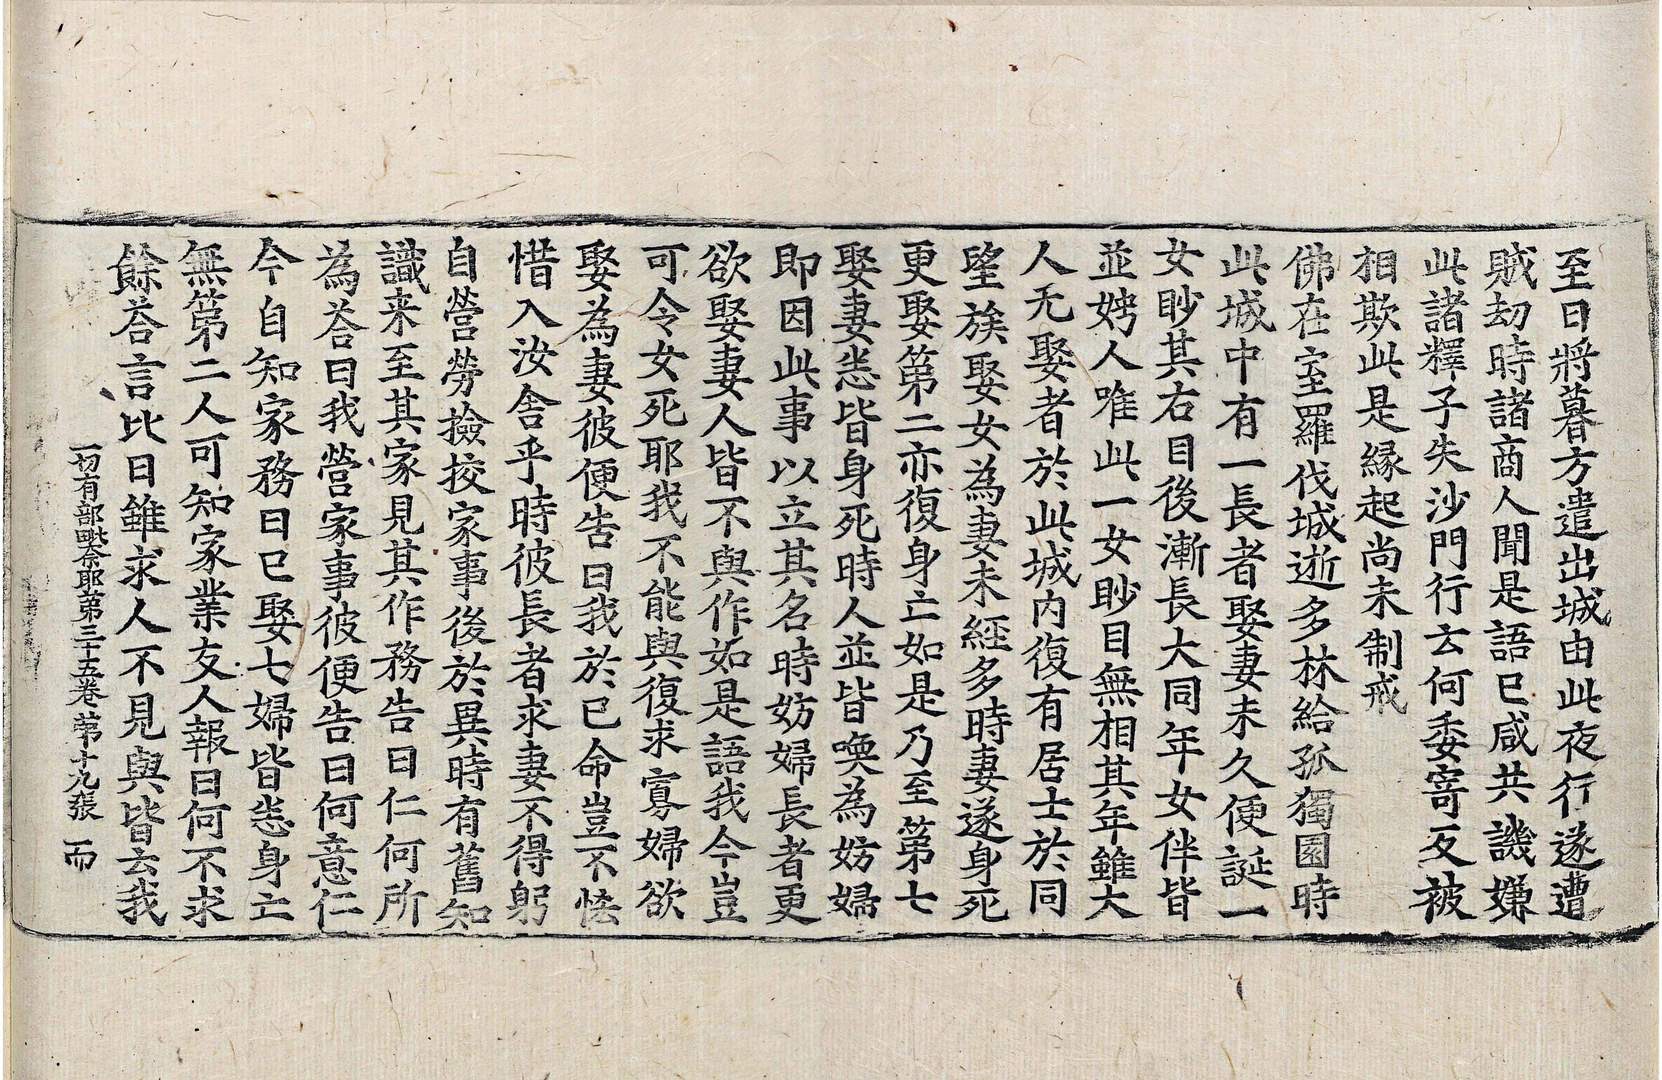 至日將暮方遣出城由此夜行遂遭
賊劫時諸商人聞是語已咸共譏嫌
此諸釋子失沙門行云何委寄反被
相欺此是緣起尚未制戒
佛在室羅伐城逝多林給孤獨園時
此城中有一長者娶妻未久便誕一
女眇其右目後漸長大同年女伴皆
並娉人唯此一女眇目無相其年雖大
人无娶者於此城內復有居士於同
望族娶女為妻未經多時妻遂身死
更娶第二亦復身亡如是乃至第七
娶妻悉皆身死時人並皆喚為妨婦
即因此事以立其名時妨婦長者更
欲娶妻人皆不與作如是語我今豈
可令女死耶我不能與復求寡婦欲
娶為妻彼便告曰我於己命豈不恡
惜入汝舍乎時彼長者求妻不得躬
自營勞撿挍家事後於異時有舊知
識来至其家見其作務告曰仁何所
為荅曰我營家事彼便告曰何意仁
今自知家務曰已娶七婦皆悉身亡
無第二人可知家業友人報曰何不求
餘荅言比日雖求人不見與皆云我
一切有部毗奈耶第三十五卷 第十九張 而